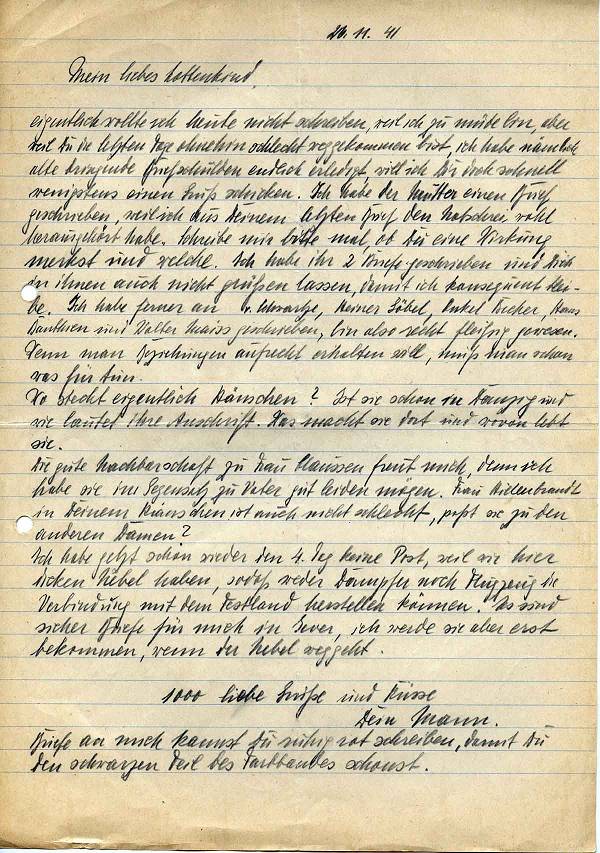 20. 11. 41
Mein liebes Lottenkind,
eigentlich wollte ich heute nicht schreiben, weil ich zu müde bin, aber
weil Du die letzten Tage ohnehin schlecht weggekommen bist, ich habe nämlich
alte dringende Briefschulden endlich erledigt will ich Dir doch schnell
wenigstens einen Gruß schicken. Ich habe der Mutter einen Brief
geschrieben, weil ich aus Deinem letzten Brief den Notschrei wohl
herausgehört habe. Schreibe mir bitte mal ob Du eine Wirkung
merkst und welche. Ich habe ihr 2 Briefe geschrieben und Dich
in ihnen auch nicht grüßen lassen, damit ich konsequent blei-
be. Ich habe ferner an v. Schwartze, Heiner Löbel, Onkel Hans
und Walter Maiss geschrieben, bin also recht fleißig gewesen.
Wenn man Beziehungen aufrecht erhalten will, muß man schon
was für tun.
Wo steckt eigentlich Hänschen? Ist sie schon in Danzig und
wie lautet ihre Anschrift. Was macht sie dort und wovon lebt
sie.
Die gute Nachbarschaft zu Frau Claussen freut mich, denn ich
habe sie im Gegensatz zu Vater gut leiden mögen. Frau Hillenbrandt
in Deinem Kränzchen ist auch nicht schlecht, paßt sie zu den
anderen Damen?
Ich habe jetzt schon wieder den 4. Tag keine Post, weil wir hier
dicken Nebel haben, sodaß weder Dampfer noch Flugzeug die
Verbindung mit dem Festland herstellen können. Es sind
sicher Briefe für mich in Jever, ich werde sie aber erst
bekommen, wenn der Nebel weggeht.
1000 liebe Grüße und Küsse
Dein Mann.
Briefe an mich kannst Du ruhig rot schreiben, damit Du
den schwarzen Teil des Farbbandes schonst.